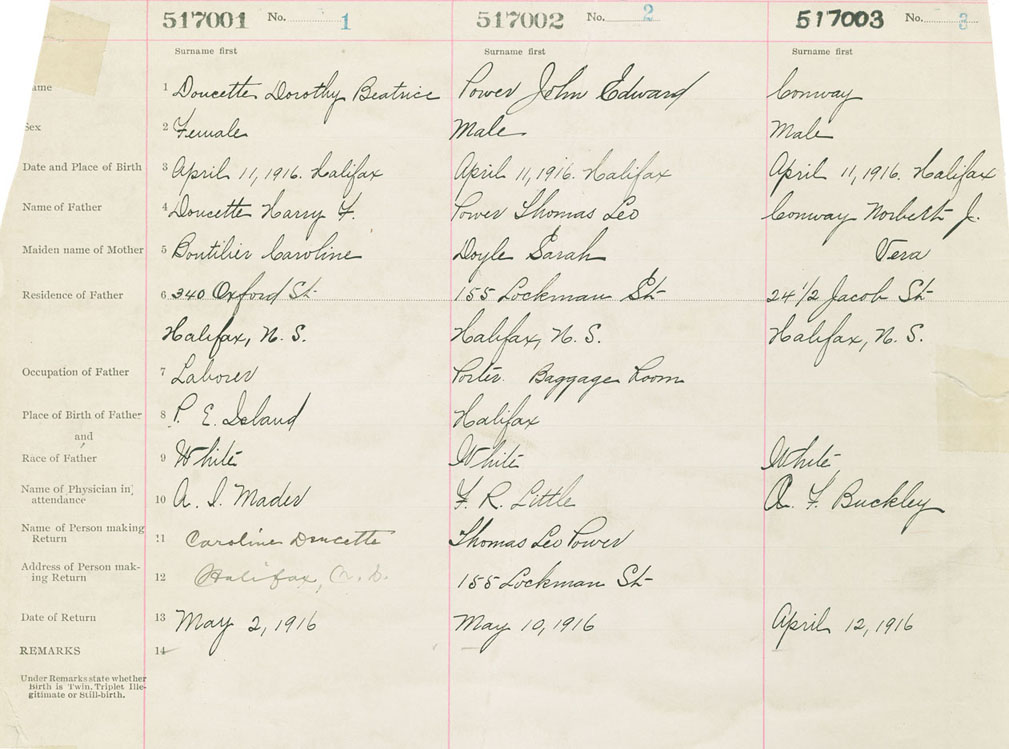 517001 No. 1 517002 No. 2 517003 No. 3
Surname first Surname first Surname first
ame 1 Doucette Dorothy Beatrice Power John Edward Conway
Sex 2 Female Male Male
Date and Place of Birth 3 April 11, 1916. Halifax April 11, 1916. Halifax April 11, 1916. Halifax
Name of Father 4 Doucette Harry F. Power Thomas Leo Conway Norbert J.
Maiden name of Mother 5 Boutilier Caroline Doyle Sarah Vera
Residence of Father 6 340 Oxford St. 155 Lockman St. 24 1/2 Jacob St.
Halifax, N. S. Halifax, N. S. Halifax, N. S.
Occupation of Father 7 Laborer Porter Baggage Room
Place of Birth of Father 8 P. E. Island Halifax
and
Race of Father 9 White White White
Name of Physician in 10 A. I. Mader F. R. Little A. F. Buckley
attendance
Name of Person making 11 Caroline Doucette Thomas Leo Power
Return
Address of Person mak- 12 Halifax, N. S. 155 Lockman St.
ing Return
Date of Return 13 May 2, 1916 May 10, 1916 April 12, 1916
REMARKS 14
Under Remarks state whether
Birth is Twin, Triplet Ille-
gitimate or Still-birth.